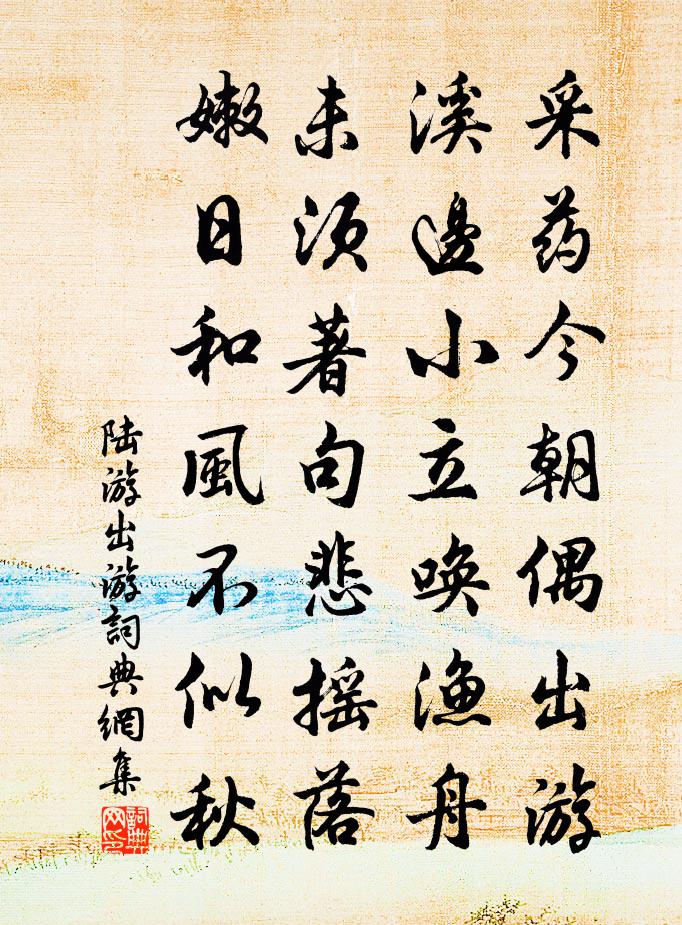 采药今朝偶出游
溪邊小立唤漁舟
未须著句悲摇落
嫩日和風不似秋
陆游出游詞典網集
詞典
网印